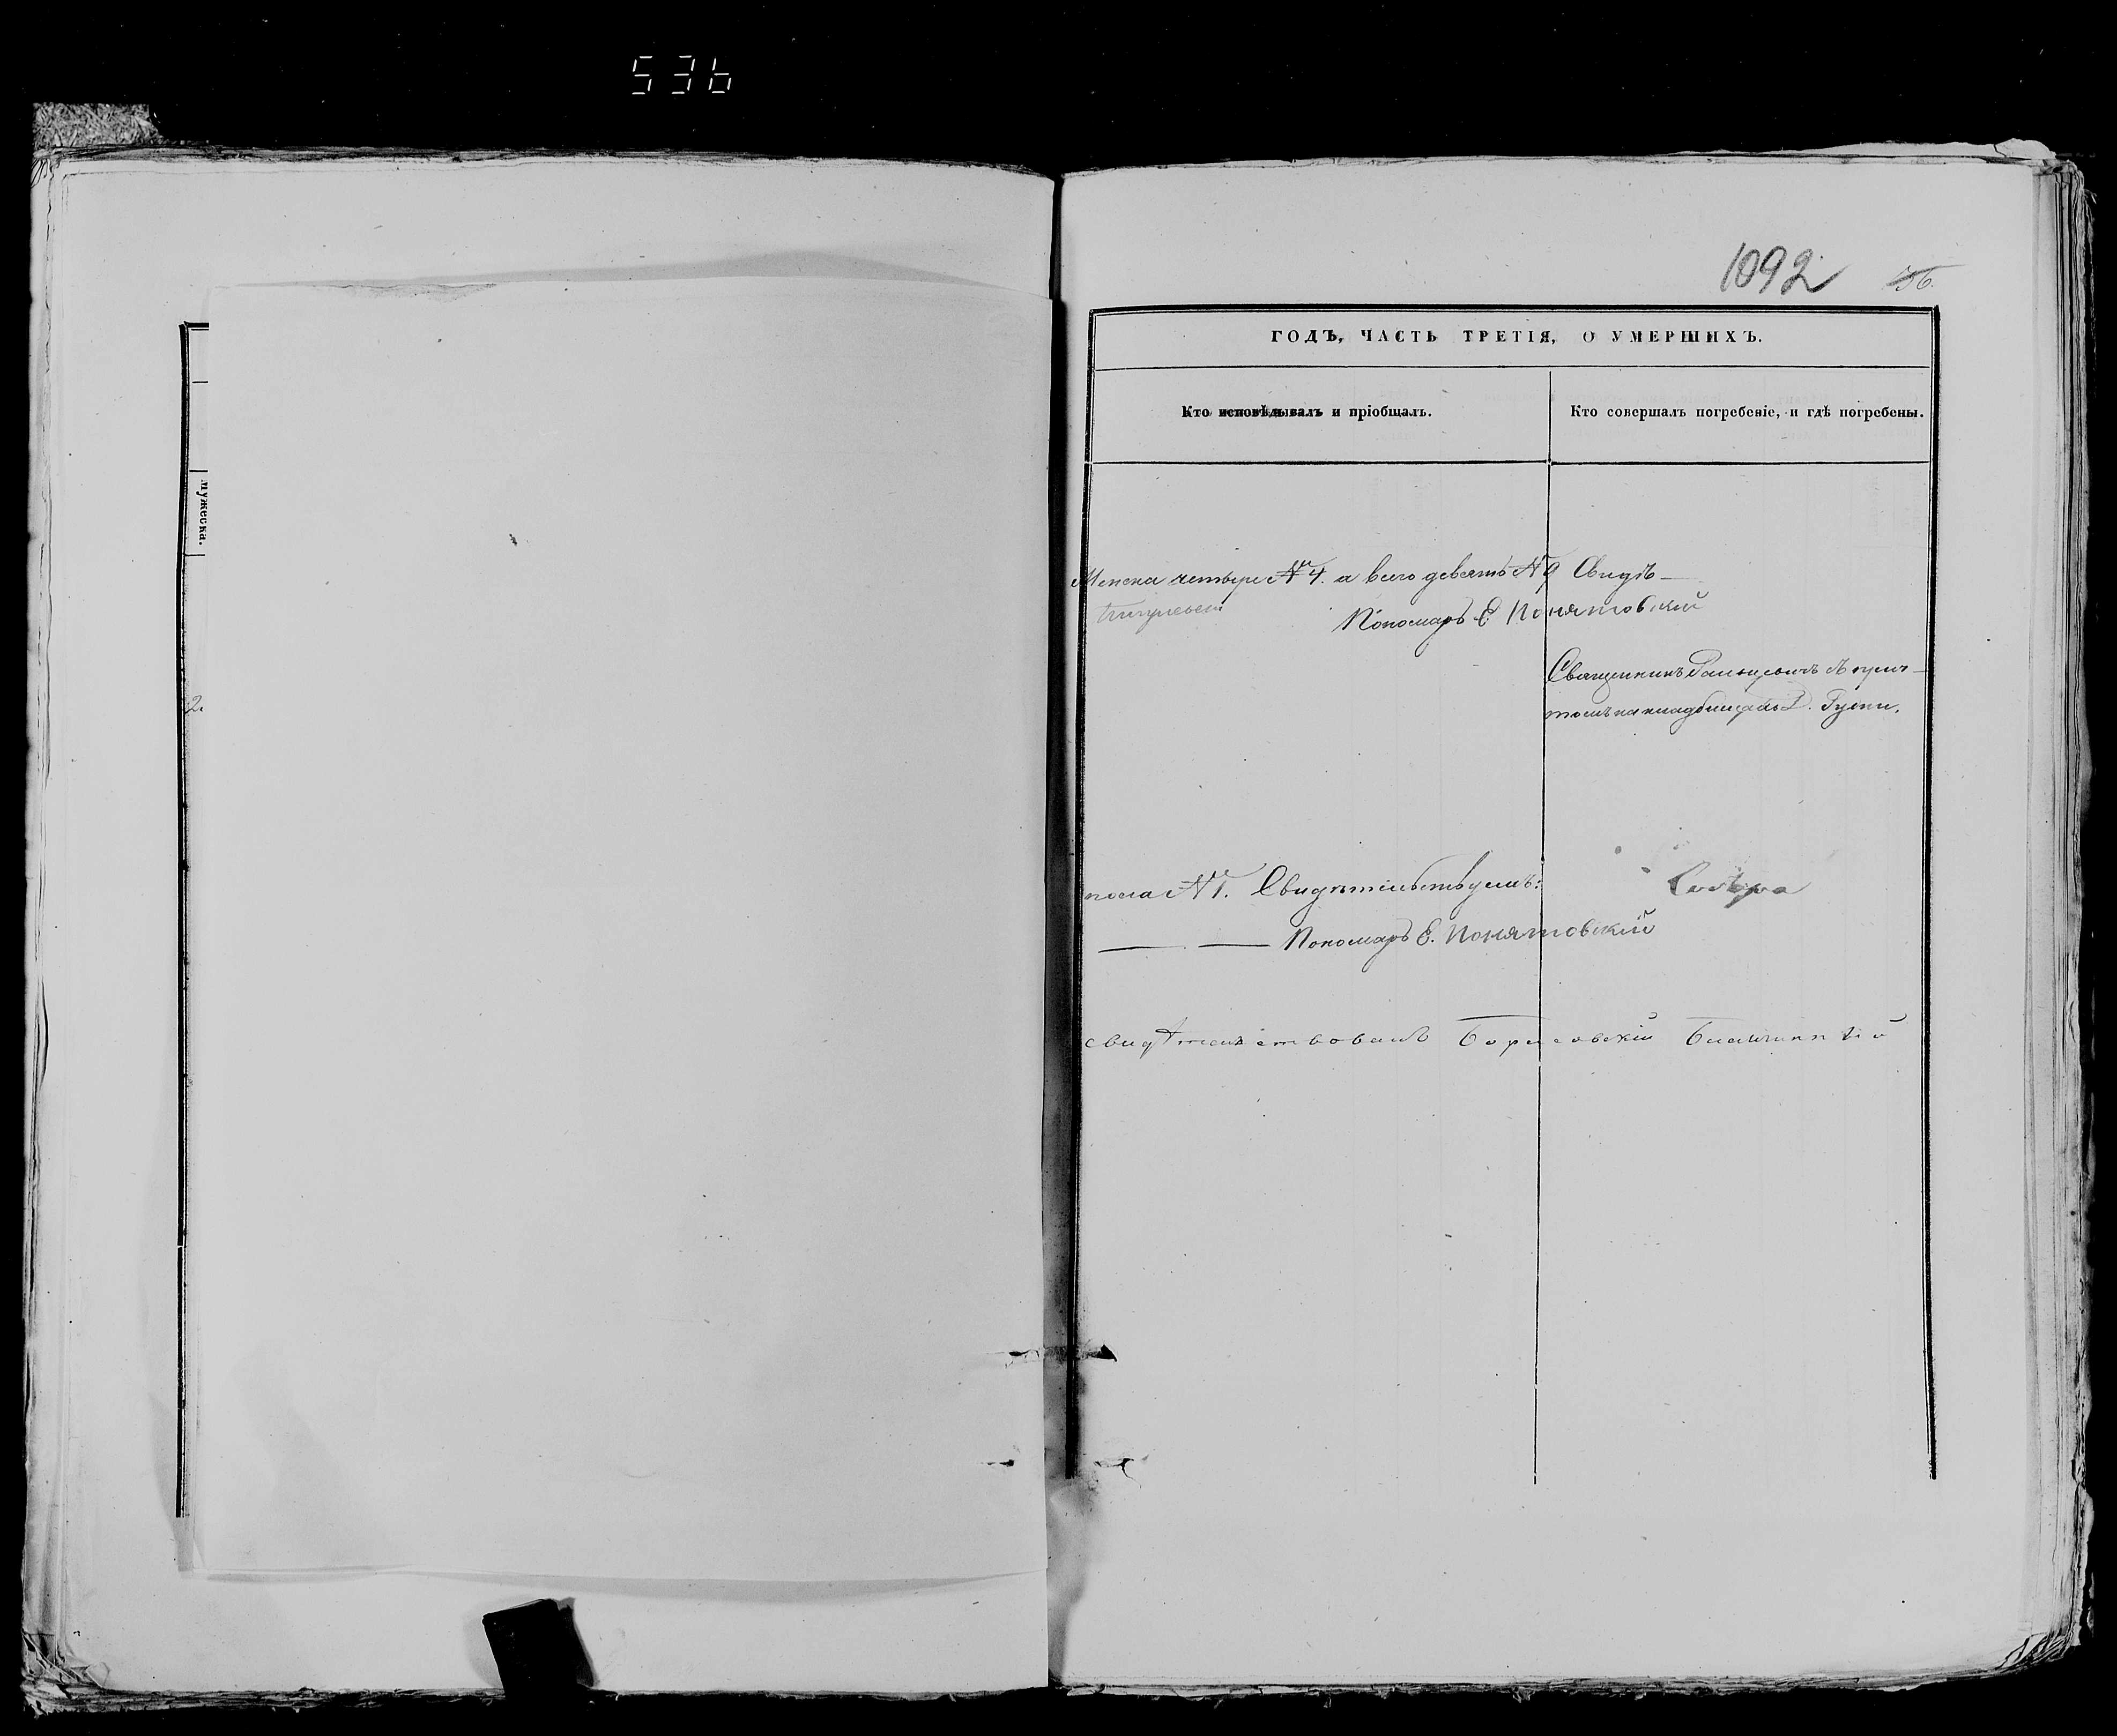 536
1092
36.
ГОДЪ, ЧАСТЬ ТРЕТІЯ, О УМЕРШИХЪ.
Кто исповѣдывалъ и пріобщалъ.
Кто совершалъ погребеніе, и гдѣ погребены.
мужеска.
2.
Женска четыре № 4. а всего девять № 9 Свидѣ–
Пономарь Е. Понятовскій
Священникъ съ прич–
томъ на кладбищѣ Д. Гуски.
пола № 1. Свидѣтельствуемъ:
Пономарь Е. Понятовскій
свидѣтельствовалъ Борисовскій Благочинный